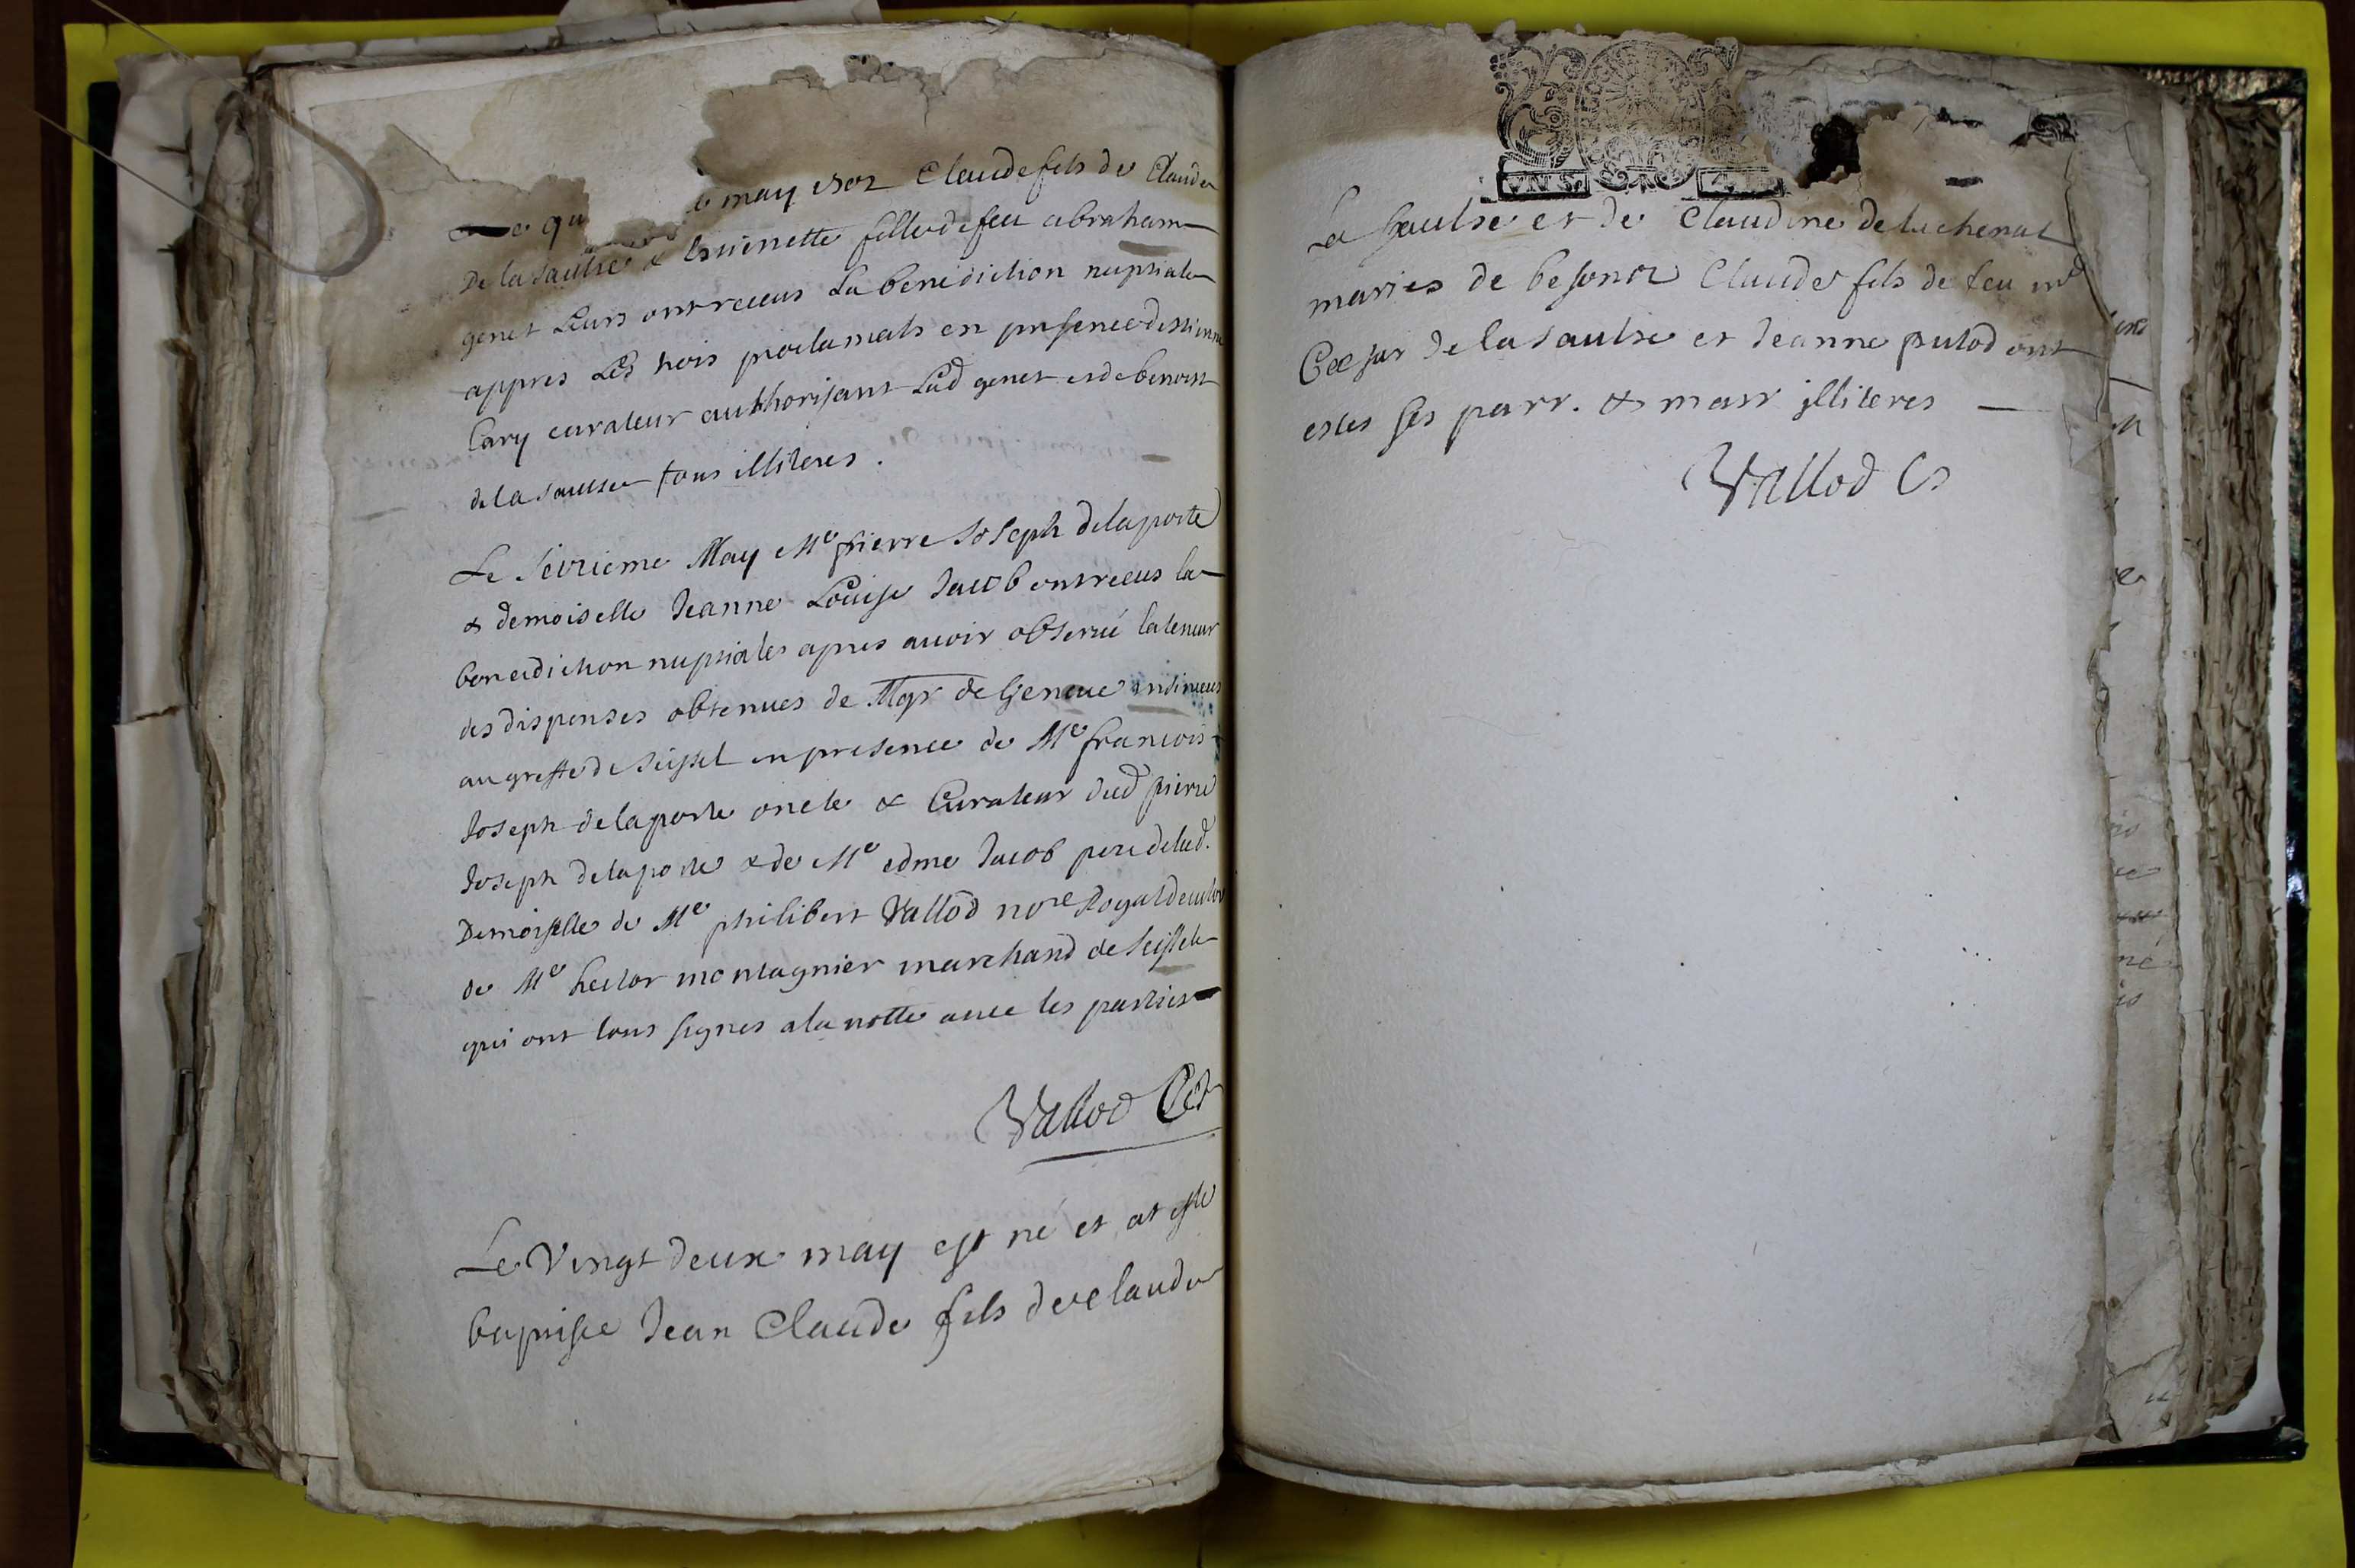 qu may 1702 Claude fils de Claude
De la Saulse & fille de feu abraham
genet Leurs ont receus La benediction nuptiale
appres Les trois proclamats en presence
Cary curateur authorisant Lad genet et de benoist
de la Saulse tous illiteres.
Le Seizieme May Me pierre Joseph delaporte
& demoiselle Jeanne Louise Jacob ont receus la
benediction nuptiales apres avoir observé la teneur
des dispenses obtenues de Mgr de Geneve insinuees
au greffe de Seissel en presence de Me francois
Joseph delaporte oncle & Curateur dud pierre
Joseph delaporte & de Me edme Jacob pere delad.
Demoiselle de Me philibert Vallod nore Royal
de Me hector montagnier marchand de Seissel
qui ont tous signes a la notte avec les parties
Vallod
Le Vingt deux may est né et at esté
baptisé Jean Claude fils de Claude
VN S. 4 D.
La Saulse et de Claudine de lachenal
maries de besonoz Claude fils de feu
Cesar de la Saulse et Jeanne putod ont
estes ses parr. & marr illiteres
Vallod